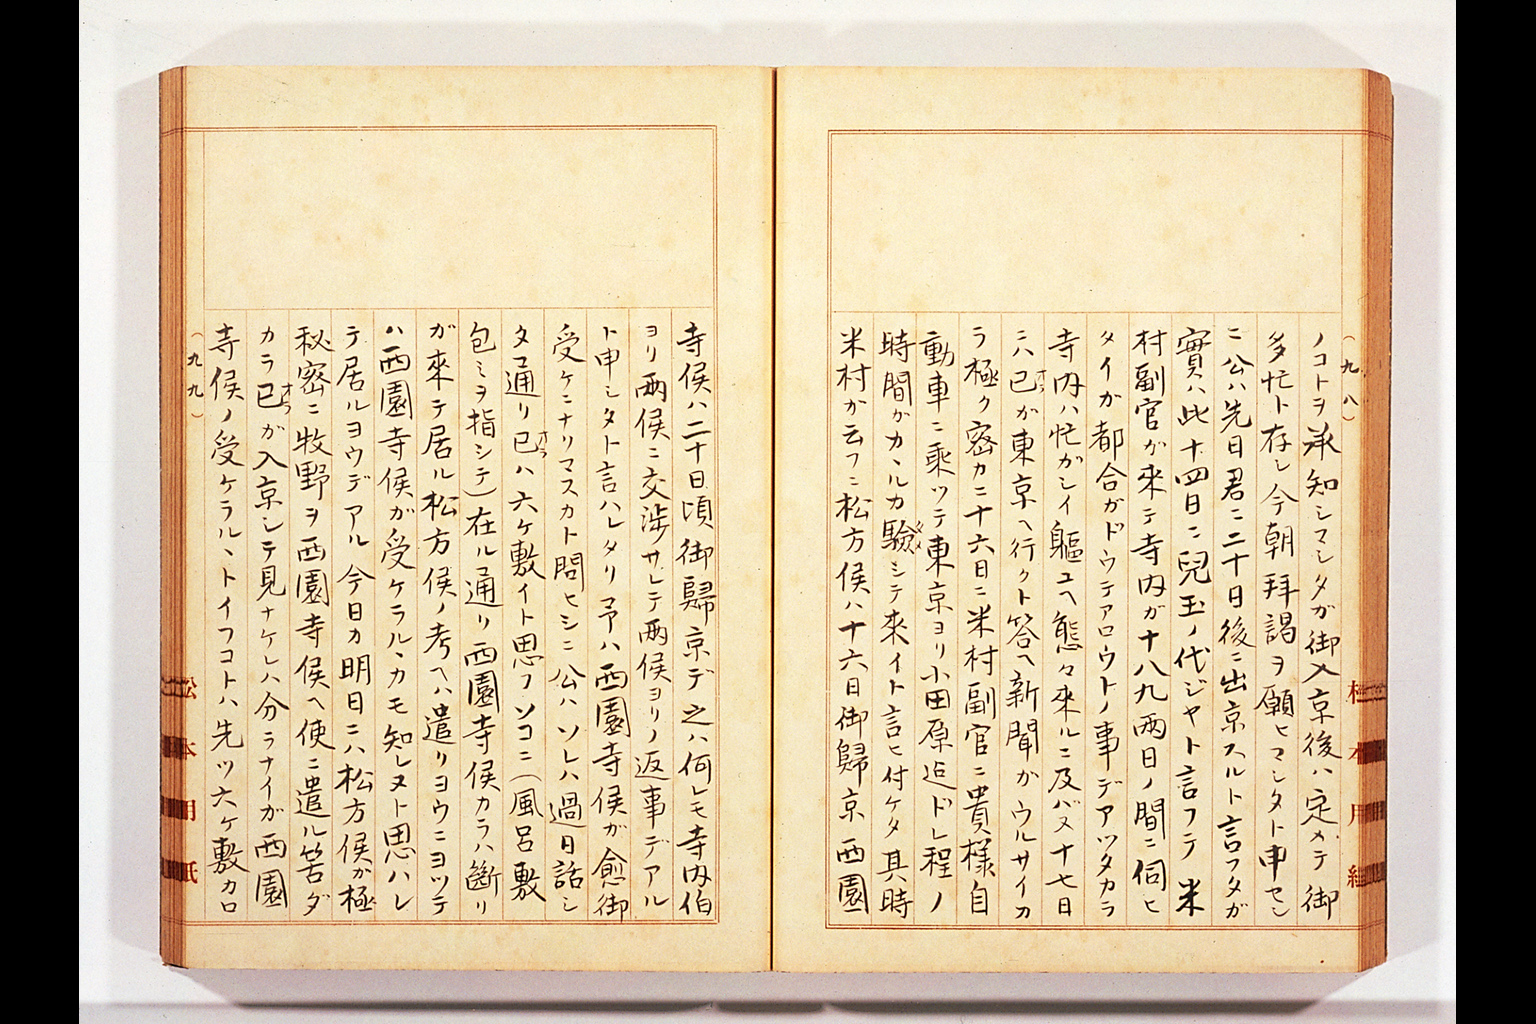 (九八)
ノコトヲ承知シマシタガ御入京後ハ定メテ御
多忙ト存シ今朝拜謁ヲ願ヒマシタト申セシ
ニ公ハ先日君ニ二十日後ニ出京スルト言フタガ
實ハ此十四日ニ兒玉ノ代ジヤト言フテ米
村副官ガ來テ寺内ガ十八九兩日ノ間ニ伺ヒ
タイガ都合ガドウデアロウトノ事デアツタカラ
寺内ハ忙ガシイ軀ユヘ態々來ルニ及バヌ十七日
ニハ已オラが東京ヘ行クト答ヘ新聞ガウルサイカ
ラ極ク密カニ十六日ニ米村副官ニ貴様自
動車ニ乘ツテ東京ヨリ小田原迄ドレ程ノ
時間ガカヽルカ驗タメシテ來イト言ヒ付ケタ其時
米村ガ云フニ松方侯ハ十六日御歸京西園
寺侯ハ二十日頃御歸京デ之ハ何レモ寺内伯
ヨリ兩侯ニ交渉サレテ兩侯ヨリノ返事デアル
ト申シタト言ハレタリ予ハ西園寺侯ガ愈御
受ケニナリマスカト問ヒシニ公ハソレハ過日話シ
タ通リ已オラハ六ケ敷イト思フソコニ(風呂敷
包ミヲ指シテ)在ル通リ西園寺侯カラハ斷リ
ガ來テ居ル松方侯ノ考ヘハ遣リヨウニヨツテ
ハ西園寺侯ガ受ケラルヽカモ知レヌト思ハレ
テ居ルヨウデアル今日カ明日ニハ松方侯ガ極
秘密ニ牧野ヲ西園寺侯ヘ使ニ遣ル筈ダ
カラ已オラが入京シテ見ナケレハ分ラナイガ西園
寺侯ノ受ケラルヽトイフコトハ先ツ六ケ敷カロ
(九九)
松本用紙
松本用紙